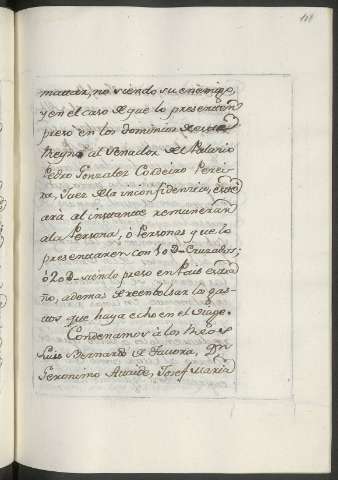 mattar, no siendo su enemigo,
y en el caso de que lo presenten
preso en los dominios de este
Reyno al Senador del Palacio
Pedro Gonzalez Cordeiro Perei-
ra, Juez de la inconfidencia, se
ará al instante remunerar
a la Persona, ò Personas que lo
presentaren con 10D_ Cruzados;
ò 20D_ siendo preso en Pais estra
ño, ademas de reenbolsar los gas-
tos que haya echo en el Viage.
Condenamos à los Reos
Luis Bernardo de Tavora, Dn
Geronimo Ataide, Josef Maria